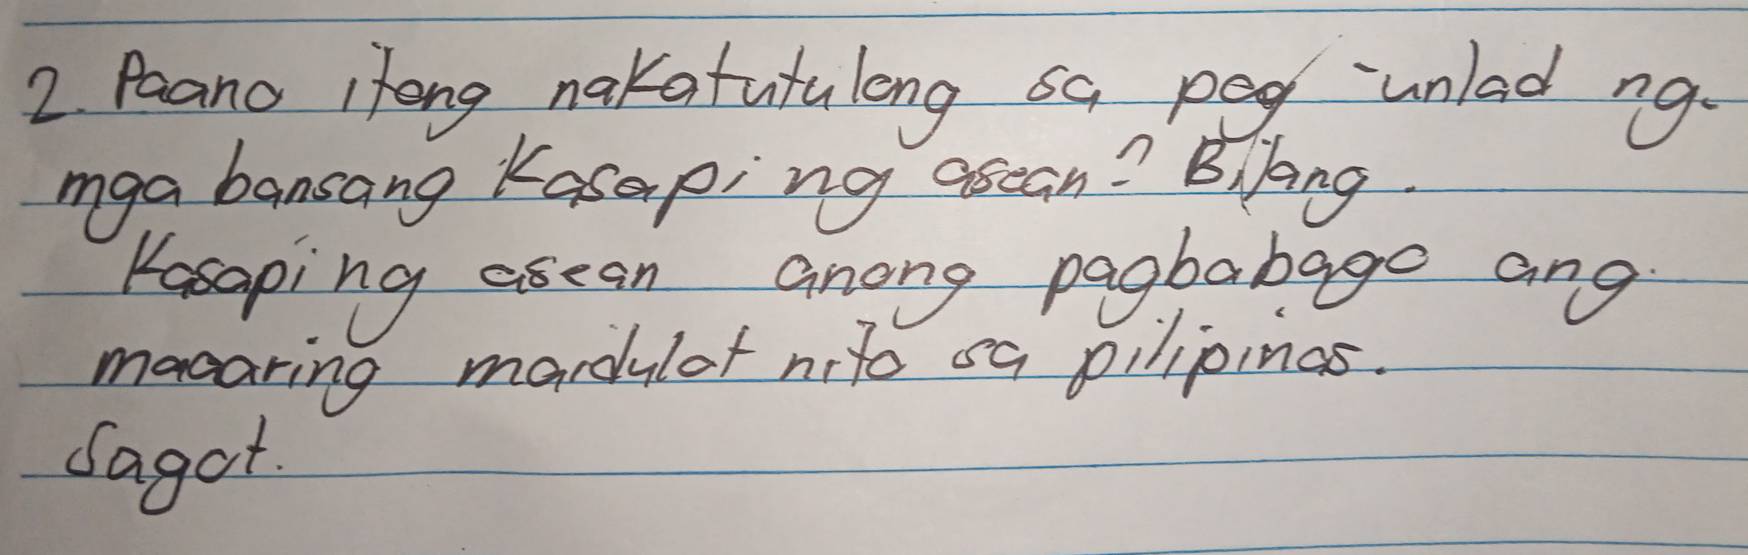 2. Paano itong nakatutulong sa pag-unlad ng
mga bansang kasaping asean? Bilang
Kasaping asean anong pagbabago ang
maaaring maidulot nito sa pilipinas.
Sagot.